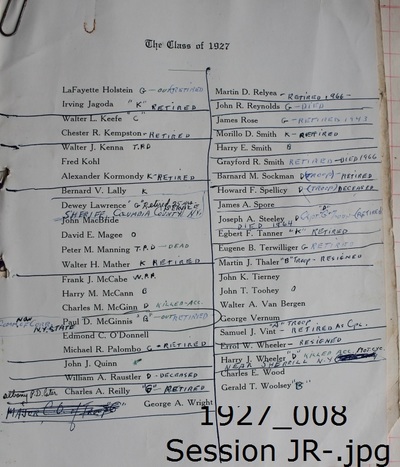 The Class of 1927
LaFayette Holstein G - RETIRED
Irving Jagoda "K" RETIRED
Walter L. Keefe "C"
Chester R. Kempston - RETIRED
Walter J. Kenna T.R.D
Fred Kohl
Alexander Kormondy K RETIRED
Bernard V. Lally K
Dewey Lawrence "G"
SHERIFF, COLUMBIA COUNTY, N.Y.
John MacBride
David E. Magee O
Peter M. Manning T.R.D - DEAD
Walter H. Mather K RETIRED
Frank J. McCabe
Harry M. McCann B
Charles M. McGinn D KILLED - ACC.
Paul D. McGinnis "G"
Edmund C. O'Donnell
Michael R. Palombo G - RETIRED
John J. Quinn
William A. Raustler D - DECEASED
Charles A. Reilly "G" RETIRED
George A. Wright
Martin D. Relyea - RETIRED 1966 -
John R. Reynolds G - DIED
James Rose G - RETIRED 1943
Morillo D. Smith K - RETIRED
Harry E. Smith B
Grayford R. Smith RETIRED - DIED 1966
Barnard M. Sockman D (TROOP) RETIRED
Howard F. Spellicy D (TROOP) DECEASED
James A. Spore "D"
Joseph A. Steeley D
DIED 1964
Egbert F. Tanner "K" RETIRED
Eugene B. Terwilliger G RETIRED
Martin J. Thaler "B" TROOP - RESIGNED
John K. Tierney
John T. Toohey O
Walter A. Van Bergen
George Vernum
"A" TROOP
Samuel J. Vint - RETIRED AS CPL.
Errol W. Wheeler - RESIGNED
Harry J. Wheeler "D" KILLED ACC.
NEAR SHERRILL N.Y.
Charles E. Wood
Gerald T. Woolsey "B"
1927_008
Session JR-.jpg